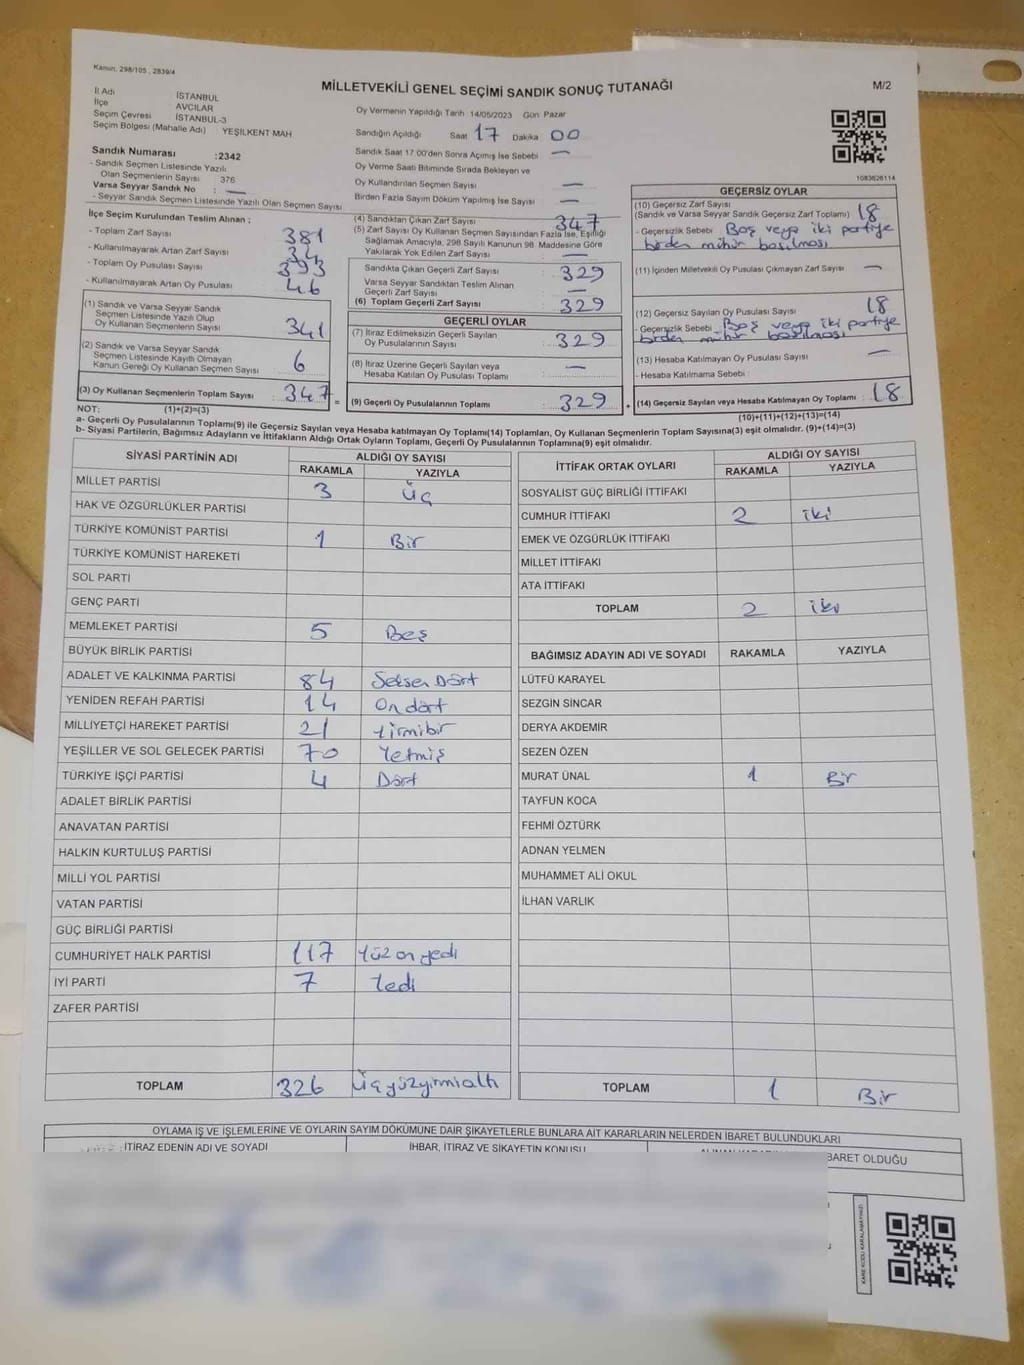 Kanun, 298/105 , 2839/4
MİLLETVEKİLİ GENEL SEÇİMİ SANDIK SONUÇ TUTANAĞI
M/2
İl Adı : İSTANBUL
İlçe : AVCILAR
Seçim Çevresi : İSTANBUL-3
Seçim Bölgesi (Mahalle Adı) : YEŞİLKENT MAH
Sandık Numarası :2342
- Sandık Seçmen Listesinde Yazılı
Olan Seçmenlerin Sayısı : 376
Varsa Seyyar Sandık No : —
- Seyyar Sandık Seçmen Listesinde Yazılı Olan Seçmen Sayısı
İlçe Seçim Kurulundan Teslim Alınan ;
- Toplam Zarf Sayısı : 381
- Kullanılmayarak Artan Zarf Sayısı : 34
- Toplam Oy Pusulası Sayısı : 393
- Kullanılmayarak Artan Oy Pusulası : 46
(1) Sandık ve Varsa Seyyar Sandık
Seçmen Listesinde Yazılı Olup
Oy Kullanan Seçmenlerin Sayısı : 341
(2) Sandık ve Varsa Seyyar Sandık
Seçmen Listesinde Kayıtlı Olmayan
Kanun Gereği Oy Kullanan Seçmen Sayısı : 6
(3) Oy Kullanan Seçmenlerin Toplam Sayısı : 347 =
Oy Vermenin Yapıldığı Tarih 14/05/2023 Gün Pazar
Sandığın Açıldığı Saat 17 Dakika 00
Sandık Saat 17:00'den Sonra Açılmış İse Sebebi —
Oy Verme Saati Bitiminde Sırada Bekleyen ve
Oy Kullandırılan Seçmen Sayısı —
Birden Fazla Sayım Döküm Yapılmış İse Sayısı —
(4) Sandıktan Çıkan Zarf Sayısı : 347
(5) Zarf Sayısı Oy Kullanan Seçmen Sayısından Fazla İse, Eşitliği
Sağlamak Amacıyla, 298 Sayılı Kanunun 98. Maddesine Göre
Yakılarak Yok Edilen Zarf Sayısı : —
Sandıkta Çıkan Geçerli Zarf Sayısı : 329
Varsa Seyyar Sandıktan Teslim Alınan
Geçerli Zarf Sayısı : —
(6) Toplam Geçerli Zarf Sayısı : 329
GEÇERLİ OYLAR
(7) İtiraz Edilmeksizin Geçerli Sayılan
Oy Pusulalarının Sayısı : 329
(8) İtiraz Üzerine Geçerli Sayılan veya
Hesaba Katılan Oy Pusulası Toplamı : —
(9) Geçerli Oy Pusulalarının Toplamı : 329 +
1083626114
GEÇERSİZ OYLAR
(10) Geçersiz Zarf Sayısı
(Sandık ve Varsa Seyyar Sandık Geçersiz Zarf Toplamı) : 18
- Geçersizlik Sebebi : Boş veya iki partiye
birden mühür basılması
(11) İçinden Milletvekili Oy Pusulası Çıkmayan Zarf Sayısı : —
(12) Geçersiz Sayılan Oy Pusulası Sayısı : 18
- Geçersizlik Sebebi : Boş veya iki partiye
birden mühür basılması
(13) Hesaba Katılmayan Oy Pusulası Sayısı : —
- Hesaba Katılmama Sebebi :
(14) Geçersiz Sayılan veya Hesaba Katılmayan Oy Toplamı : 18
NOT: (1)+(2)=(3)
(10)+(11)+(12)+(13)=(14)
a- Geçerli Oy Pusulalarının Toplamı(9) ile Geçersiz Sayılan veya Hesaba katılmayan Oy Toplamı(14) Toplamları, Oy Kullanan Seçmenlerin Toplam Sayısına(3) eşit olmalıdır. (9)+(14)=(3)
b- Siyasi Partilerin, Bağımsız Adayların ve İttifakların Aldığı Ortak Oyların Toplamı, Geçerli Oy Pusulalarının Toplamına(9) eşit olmalıdır.
SİYASİ PARTİNİN ADI ALDIĞI OY SAYISI
RAKAMLA YAZIYLA
MİLLET PARTİSİ 3 Üç
HAK VE ÖZGÜRLÜKLER PARTİSİ
TÜRKİYE KOMÜNİST PARTİSİ 1 Bir
TÜRKİYE KOMÜNİST HAREKETİ
SOL PARTİ
GENÇ PARTİ
MEMLEKET PARTİSİ 5 Beş
BÜYÜK BİRLİK PARTİSİ
ADALET VE KALKINMA PARTİSİ 84 Seksen Dört
YENİDEN REFAH PARTİSİ 14 On dört
MİLLİYETÇİ HAREKET PARTİSİ 21 Yirmibir
YEŞİLLER VE SOL GELECEK PARTİSİ 70 Yetmiş
TÜRKİYE İŞÇİ PARTİSİ 4 Dört
ADALET BİRLİK PARTİSİ
ANAVATAN PARTİSİ
HALKIN KURTULUŞ PARTİSİ
MİLLİ YOL PARTİSİ
VATAN PARTİSİ
GÜÇ BİRLİĞİ PARTİSİ
CUMHURİYET HALK PARTİSİ 117 Yüz on yedi
İYİ PARTİ 7 Yedi
ZAFER PARTİSİ
TOPLAM 326 Üçyüzyirmialtı
İTTİFAK ORTAK OYLARI ALDIĞI OY SAYISI
RAKAMLA YAZIYLA
SOSYALİST GÜÇ BİRLİĞİ İTTİFAKI
CUMHUR İTTİFAKI 2 iki
EMEK VE ÖZGÜRLÜK İTTİFAKI
MİLLET İTTİFAKI
ATA İTTİFAKI
TOPLAM 2 iki
BAĞIMSIZ ADAYIN ADI VE SOYADI RAKAMLA YAZIYLA
LÜTFÜ KARAYEL
SEZGİN SİNCAR
DERYA AKDEMİR
SEZEN ÖZEN
MURAT ÜNAL 1 Bir
TAYFUN KOCA
FEHMİ ÖZTÜRK
ADNAN YELMEN
MUHAMMET ALİ OKUL
İLHAN VARLIK
TOPLAM 1 Bir
OYLAMA İŞ VE İŞLEMLERİNE VE OYLARIN SAYIM DÖKÜMÜNE DAİR ŞİKAYETLERLE BUNLARA AİT KARARLARIN NELERDEN İBARET BULUNDUKLARI
İTİRAZ EDENİN ADI VE SOYADI İHBAR, İTİRAZ VE ŞİKAYETİN KONUSU BARET OLDUĞU
KARE KODU KARALAMAYINIZ!